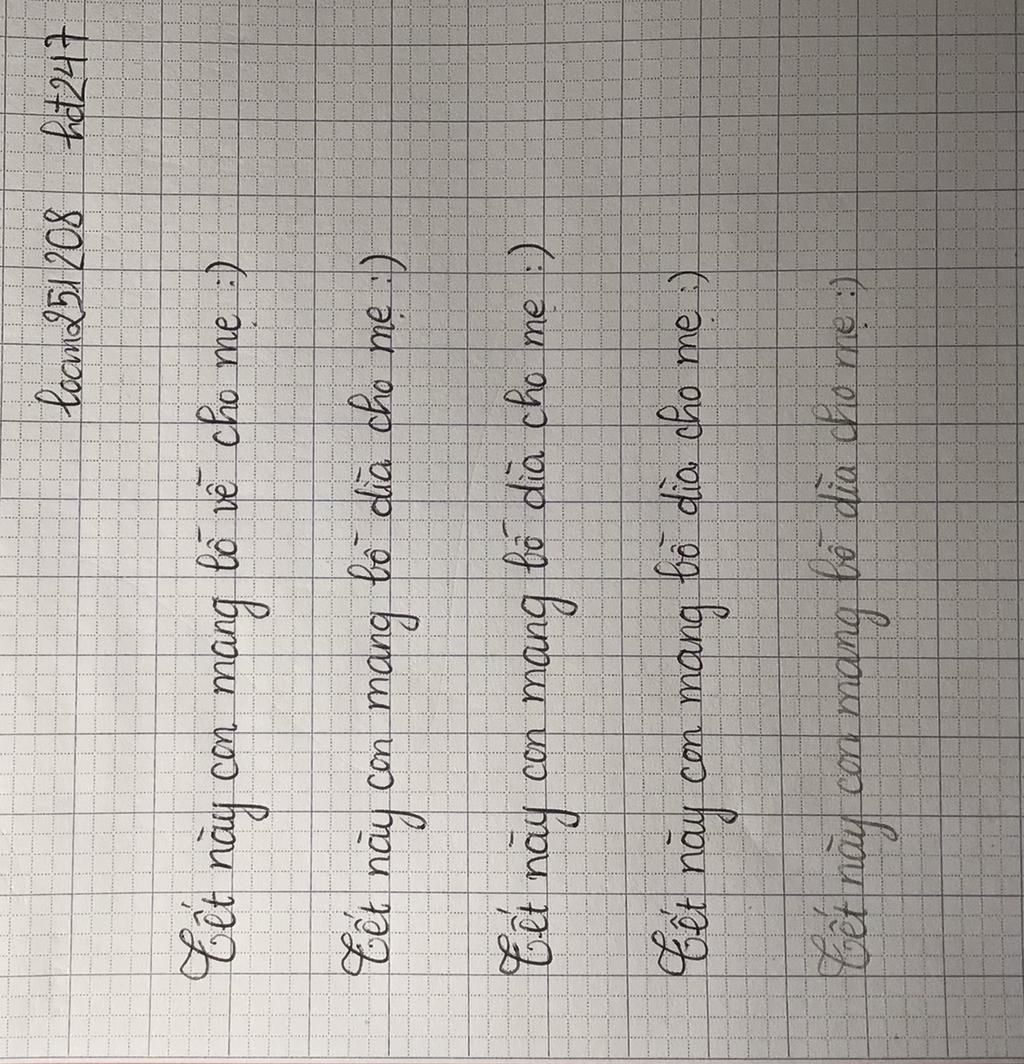 loan251208 hdt247
Tết này con mang bố về cho mẹ :)
Tết này con mang bố dìa cho mẹ :)
Tết này con mang bố dìa cho mẹ :)
Tết này con mang bố dìa cho mẹ :)
Tết này con mang bố dìa cho mẹ :)